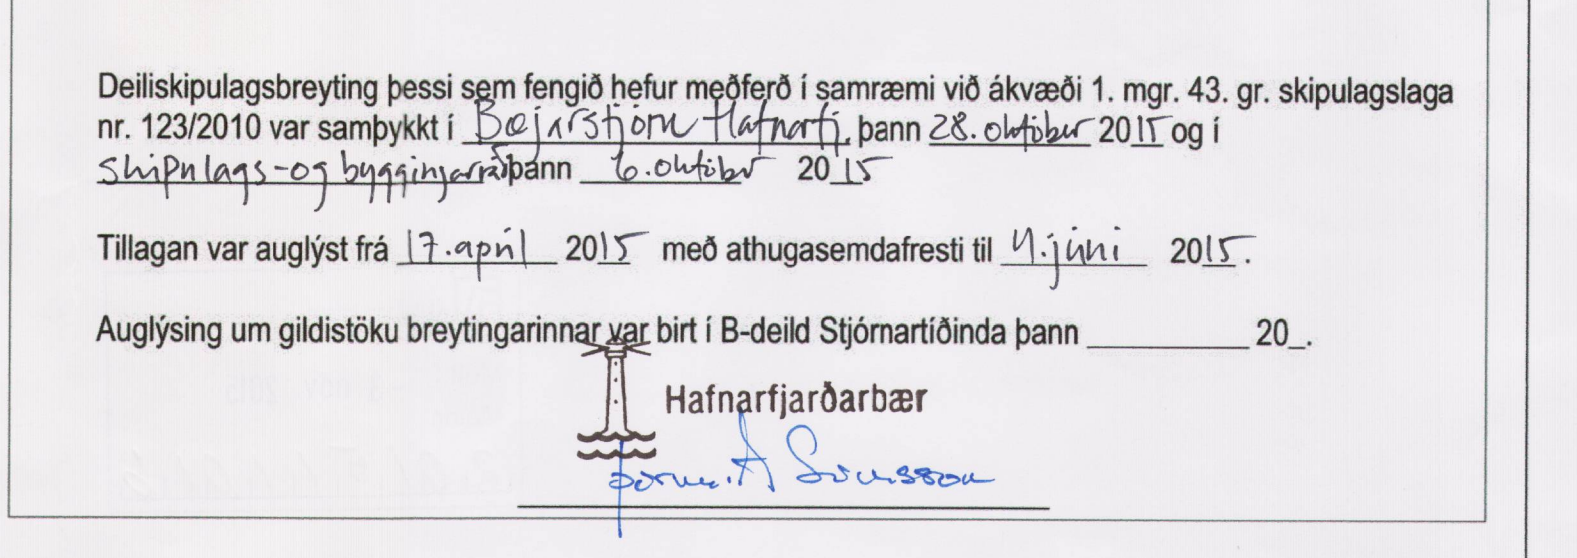 Deiliskipulagsbreyting þessi sem fengið hefur meðferð í samræmi við ákvæði 1. mgr. 43. gr. skipulagslaga
nr. 123/2010 var samþykkt í Bæjarstjórn Hafnarfj. þann 28. október 2015 og í
skipulags-og byggingarráði þann 6. október 2015
Tillagan var auglýst frá 17. apríl 2015 með athugasemdafresti til 4. júní 2015.
Auglýsing um gildistöku breytingarinnar var birt í B-deild Stjórnartíðinda þann _________ 20_.
Hafnarfjarðarbær